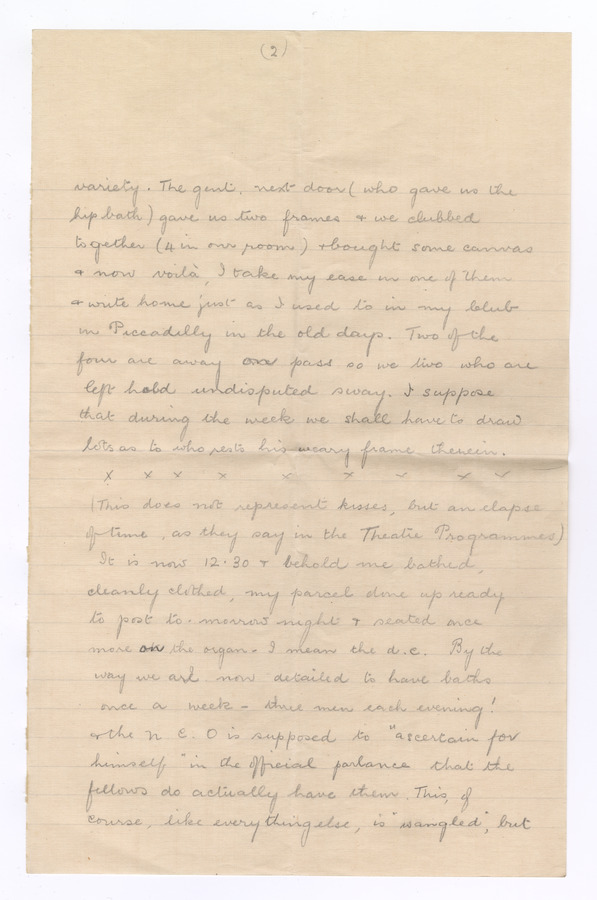 (2)
variety. The gent. next door (who gave us the
hip bath) gave us two frames & we clubbed
together (4 in our room) & bought some canvas
& now voilà, I take my ease in one of them
& write home just as I used to in my Club
in Piccadilly in the old days. Two of the
four are away on pass so we two who are
left hold undisputed sway. I suppose
that during the week we shall have to draw
lots as to who rests his weary frame therein.
x x x x x x x x x
(This does not represent kisses, but an elapse
of time, as they say in the Theatre Programmes)
It is now 12.30 & behold me bathed,
cleanly clothed, my parcel done up ready
to post to-morrow night & seated once
more on the organ - I mean the d.c. By the
way we are now detailed to have baths
once a week - three men each evening!
& the N.C.O is supposed to "ascertain for
himself" in the official parlance that the
fellows do actually have them. This, of
course, like everything else, is "wangled", but